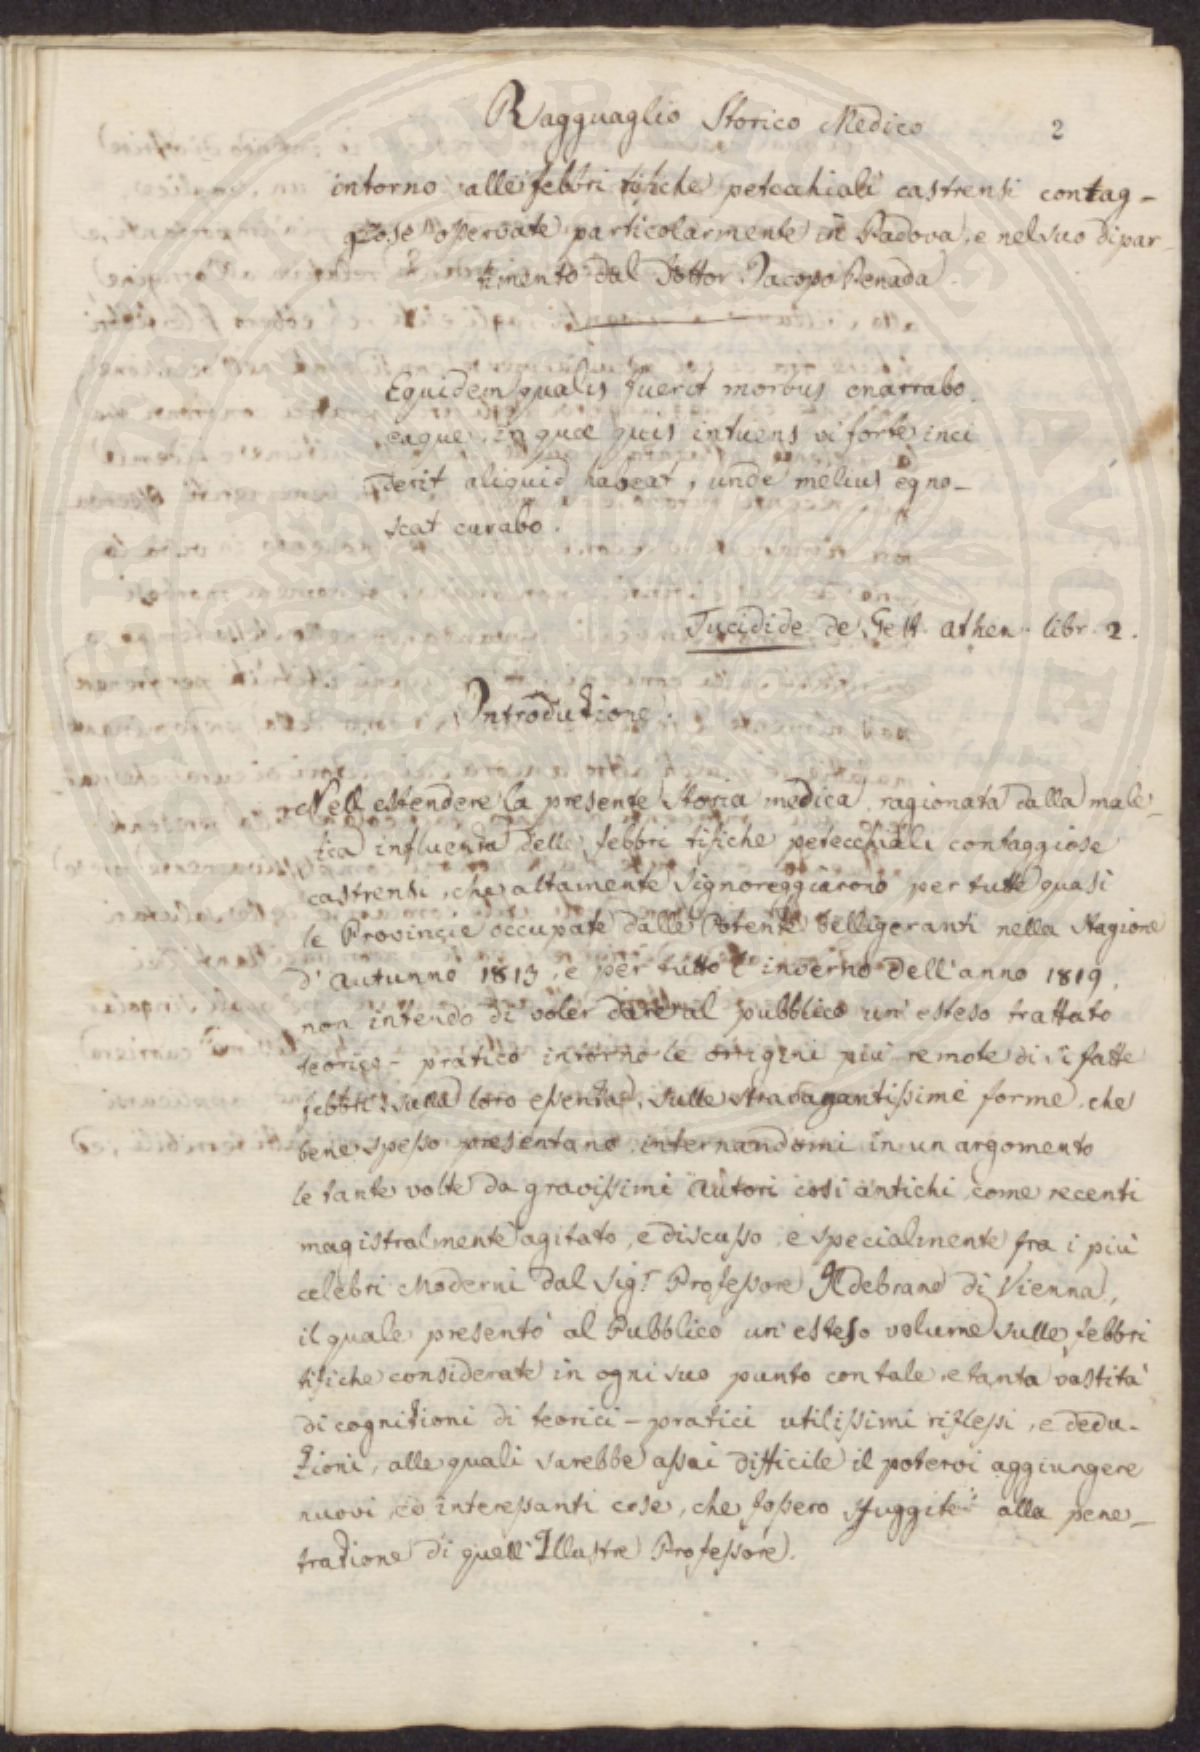 2
Ragguaglio Storico Medico
intorno alle febbri tifiche petecchiali castrensi contag-
giose osservate particolarmente in Padova, e nel suo dipar-
timento dal Dottor Jacopo Penada.
Equidem qualis fuerit morbus enarrabo,
eaque, in quæ quis intuens vi forte inci
derit aliquid habeat, unde melius egno-
scat curabo.
Tucidide de Gest. athen. libr. 2.
Introduzione.
Nell estendere la presente Storia medica, ragionata dalla male-
fica influenza delle febbri tifiche petecchiali contaggiose
castrensi, che altamente signoreggiarono per tutte quasi
le Provincie occupate dalle Potenze belligeranti nella Stagione
d'autunno 1813, e per tutto l'inverno dell'anno 1819,
non intendo di voler dare al pubblico un' esteso trattato
teorico-pratico intorno le origini più remote di sì fatte
febbri sulla loro essenza, sulle stravagantissime forme, che
bene spesso presentano internandomi in un argomento
le tante volte da gravissimi autori così antichi, come recenti
magistralmente agitato, e discusso, e specialmente fra i più
celebri Moderni dal Sig.r Professore Ildebrand di Vienna,
il quale presentò al Pubblico un' esteso volume sulle febbri
tifiche considerate in ogni suo punto con tale e tanta vastità
di cognizioni di teorici-pratici utilissimi riflessi, e dedu-
zioni, alle quali sarebbe assai difficile il potervi aggiungere
nuovi, ed interessanti cose, che fossero sfuggite alla pene-
trazione di quell'Illustre Professore.